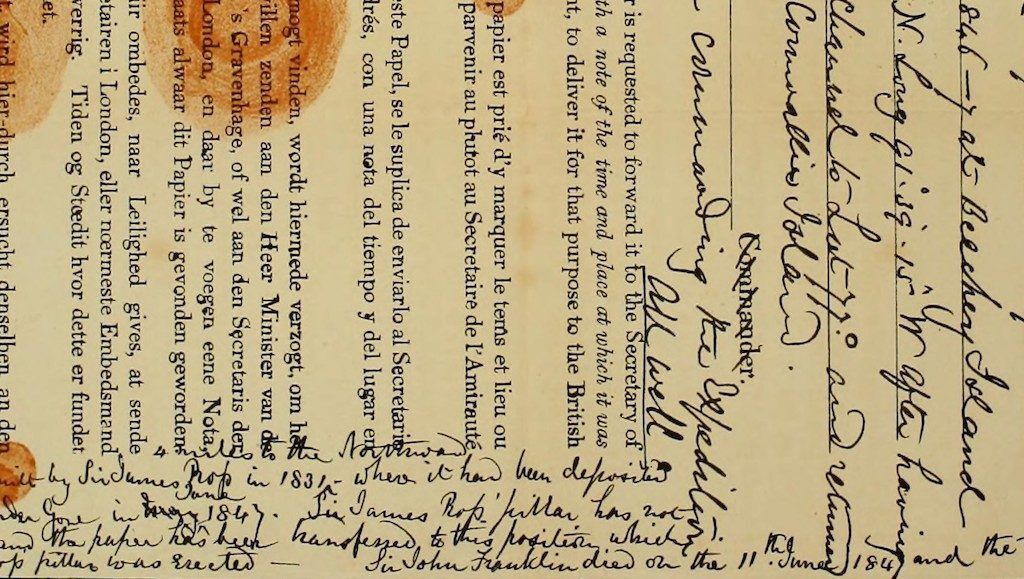 846–7 at Beechey Island
N. Long 91.39.15" W after having
channel to Lat 77° and returned
Cornwallis Island.
Commander.
commanding the Expedition.
All well
r is requested to forward it to the Secretary of
th a note of the time and place at which it was
nt, to deliver it for that purpose to the British
papier est prié d'y marquer le tems et lieu ou
parvenir au plutot au Secretaire de l'Amirauté
ste Papel, se le suplica de enviarlo al Secretario
drés, con una nota del tiempo y del lugar en
mogt vinden, wordt hiermede verzogt, om het
willen zenden aan den Heer Minister van de
's Gravenhage, of wel aan den Secretaris der
London, en daar by te voegen eene Nota
aats alwaar dit Papier is gevonden geworden
ir ombedes, naar Leilighed gives, at sende
etairen i London, eller nærmeste Embedsmand
verrig. Tiden og Stœdit hvor dette er fundet
et.
t, wird hier-durch ersucht denselben an den
4 miles to the Northward
by Sir James Ross in 1831 – where it had been deposited
Gore in May June 1847. Sir James Ross' pillar has not
and the paper has been transferred to this position which
oss pillar was erected — Sir John Franklin died on the 11th June 1847 and the